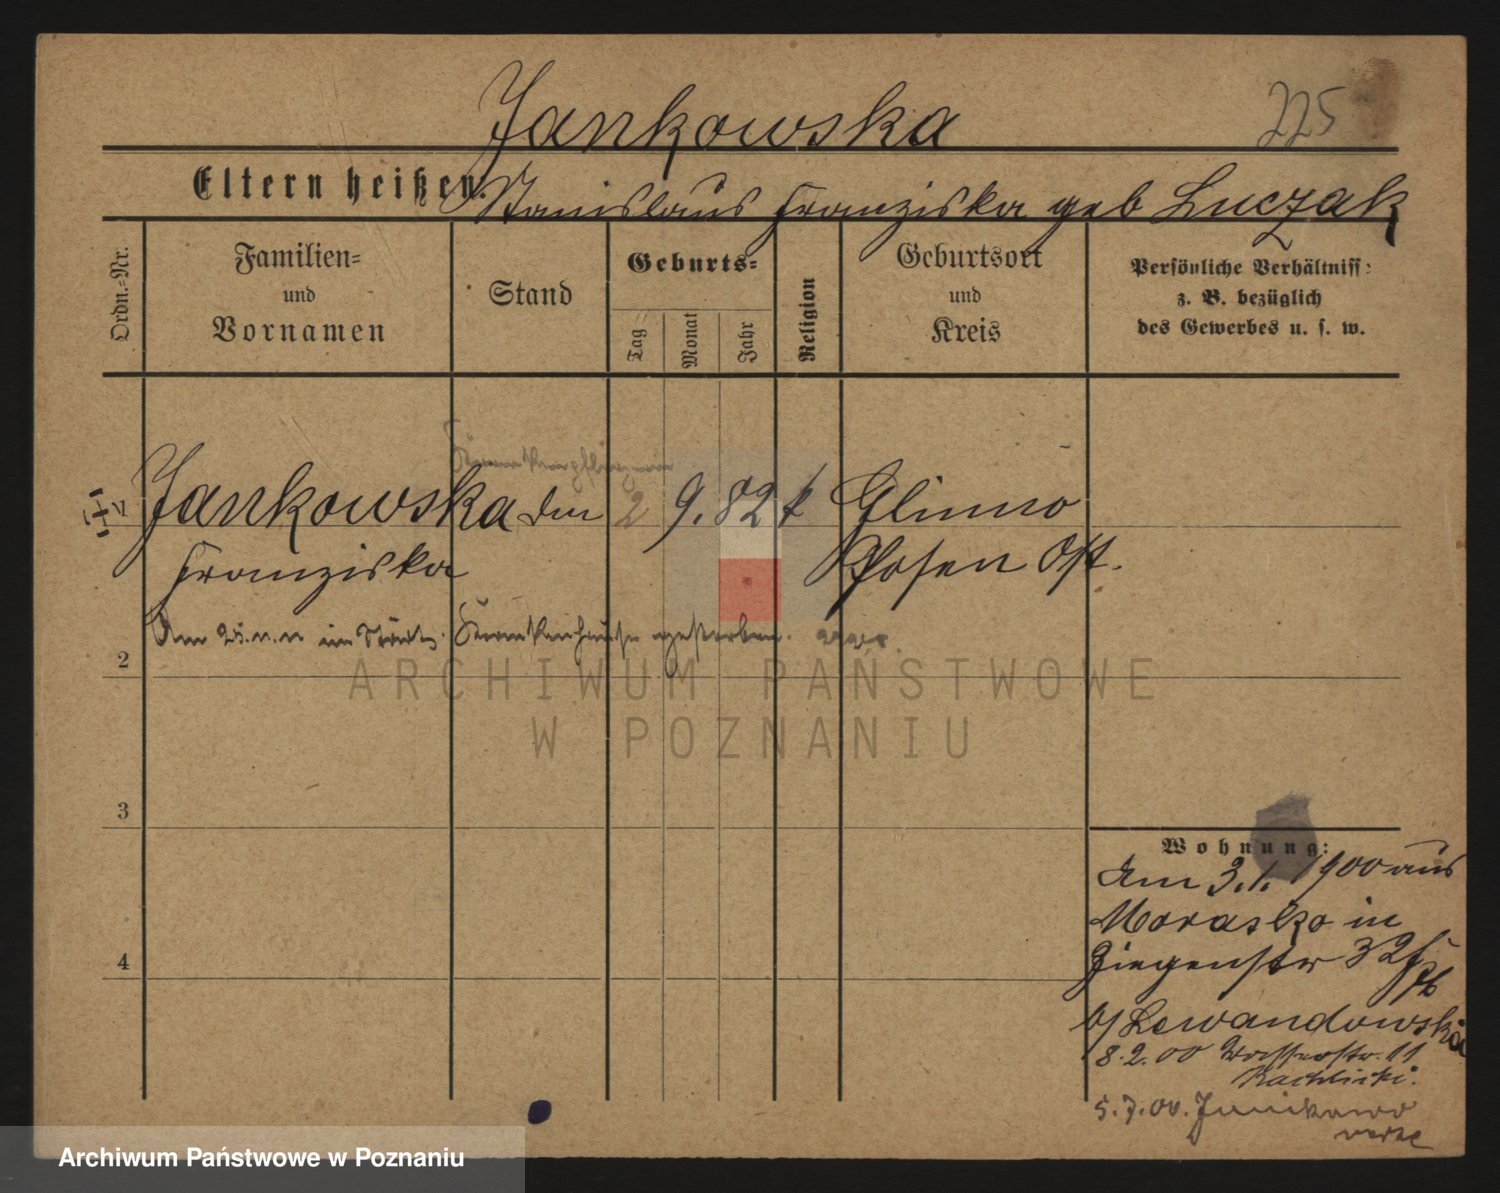 Jankowska
225
Eltern heißen.
Stanislaus Franziska geb Luczak
Ordn.=Nr.
Familien=
und
Vornamen
Stand
Geburts=
Tag
Monat
Jahr
Religion
Geburtsort
und
Kreis
Persönliche Verhältniss:
z. B. bezüglich
des Gewerbes u. s. w.
Krankenpflegerin
Jankowska den 2 9. 82 k Glinno
Franziska Posen Ost.
Am im Städt. Krankenhause gestorben.
2
3
4
Wohnung:
Am 3.1. 1900 aus
Morasko in
Ziegenstr 32
b/ Lewandowska
8.2.00 Wasserstr. 11
5.7.00. Junikowo
ARCHIWUM PAŃSTWOWE
W POZNANIU
Archiwum Państwowe w Poznaniu